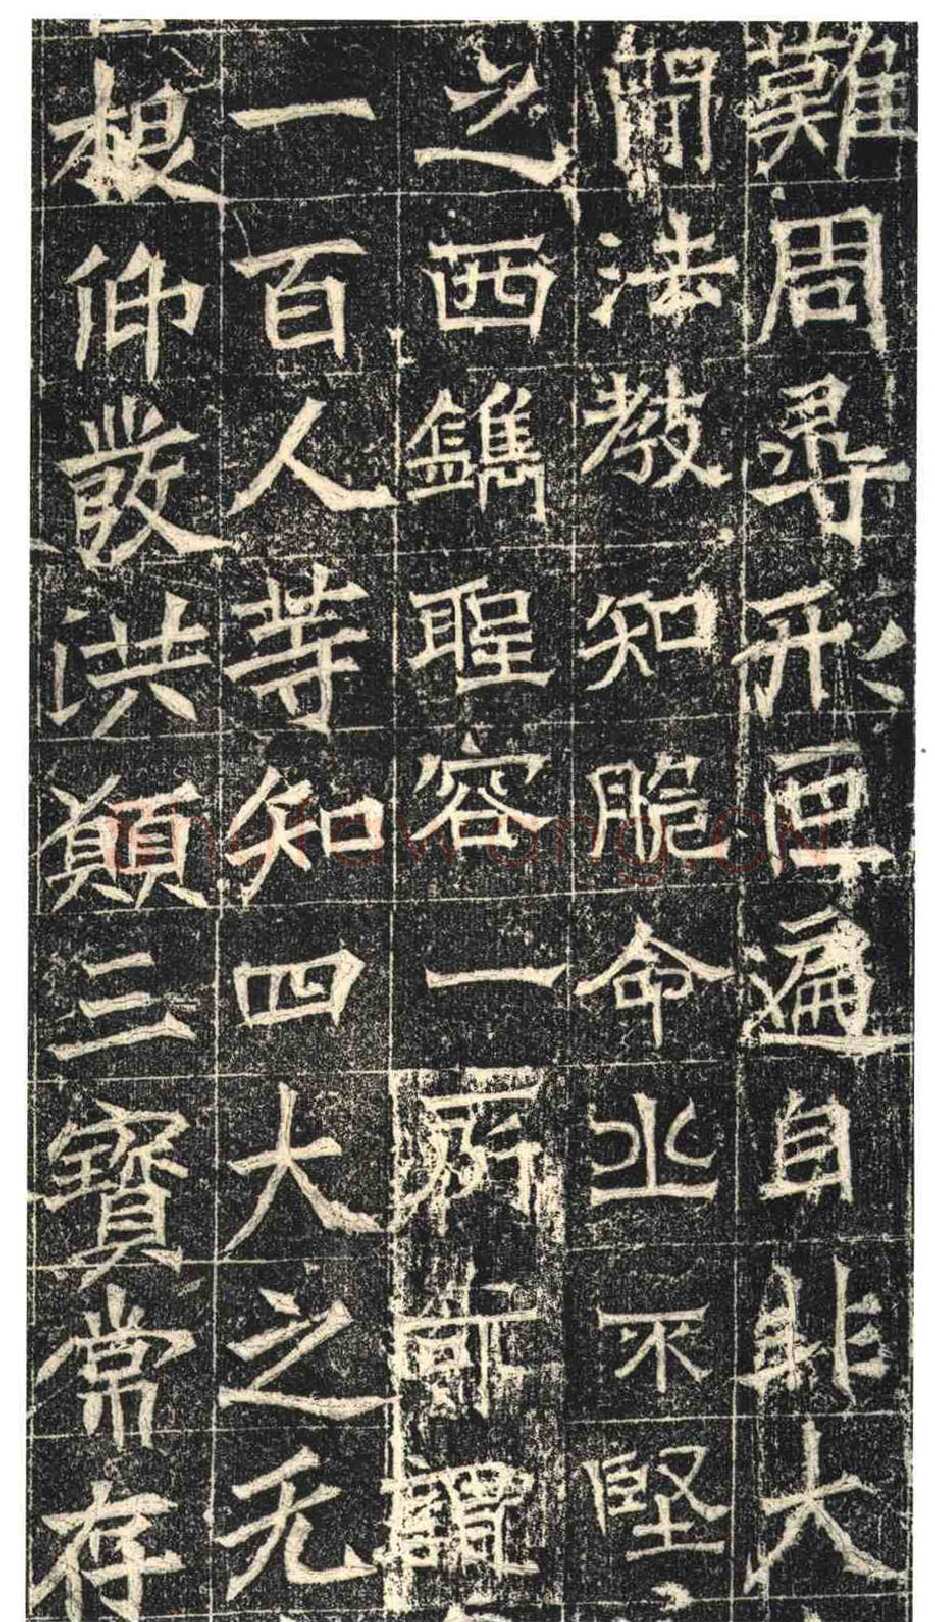 難周尋形叵遍自非大
聞法教知脆命㞢不堅
之西鐫聖容一所可謂
一百人等知四大之无
根仰發洪願三寶常存